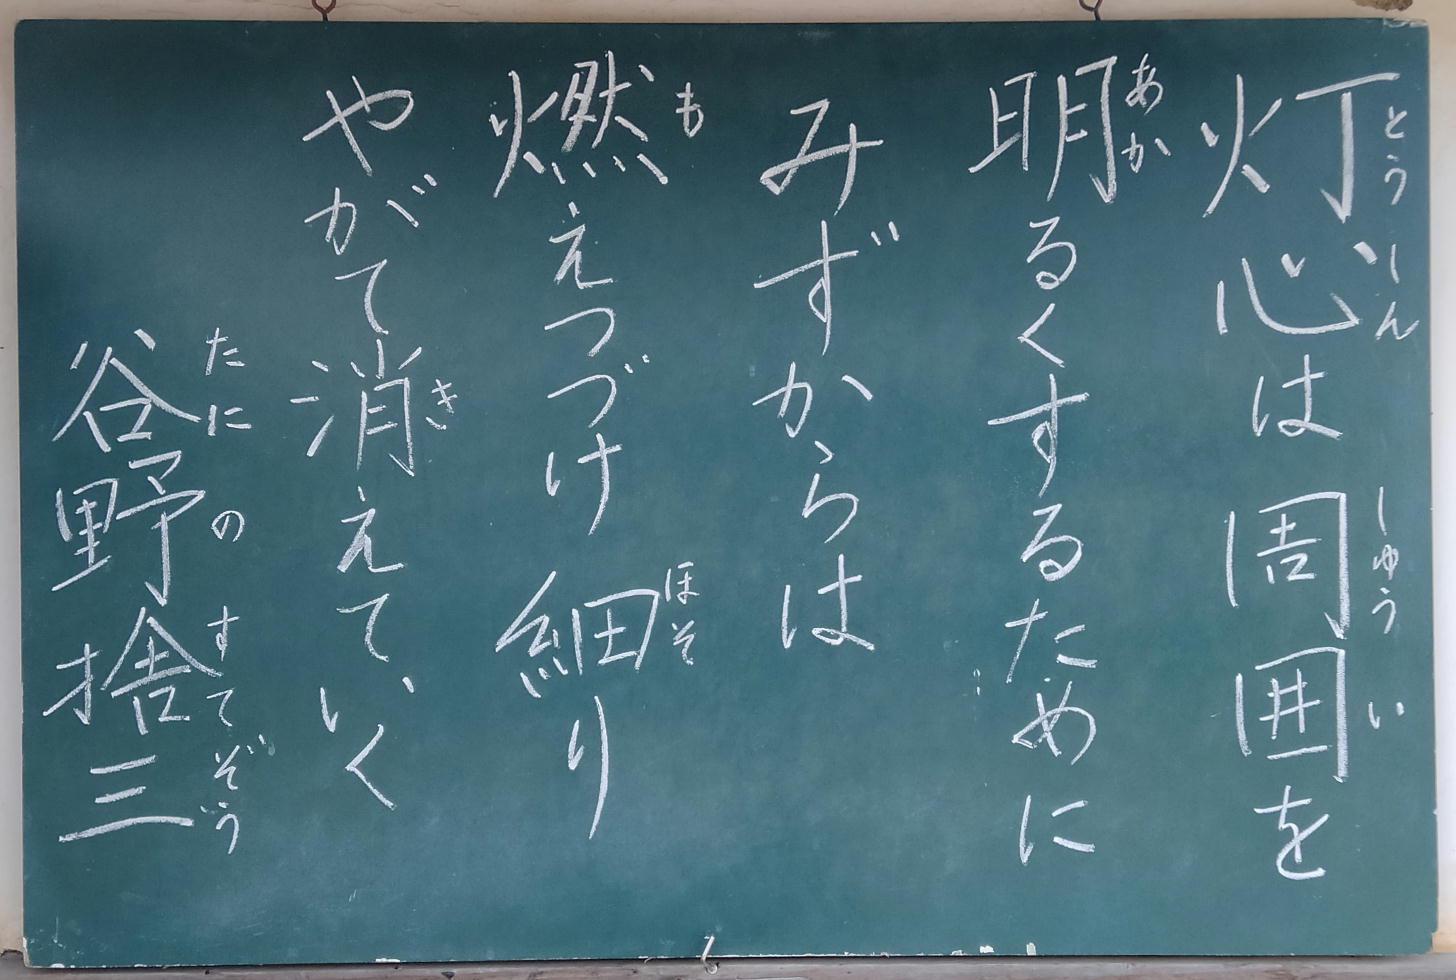 灯心は周囲を
とうしん しゅうい
明るくするために
あか
みずからは
燃えつづけ細り
も ほそ
やがて消えていく
き
谷野捨三
たにのすてぞう